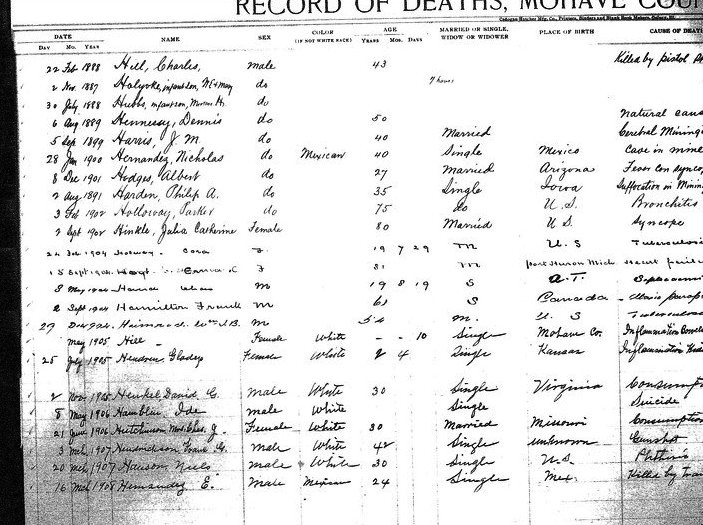 RECORD OF DEATHS, MOHAVE COUN
DATE NAME SEX COLOR (IF NOT WHITE RACE) AGE MARRIED OR SINGLE, WIDOW OR WIDOWER PLACE OF BIRTH CAUSE OF DEATH
Day Mo. Year Years Mos. Days
22 Feb 1888 Hill, Charles, male 43 Killed by pistol
2 Nov. 1887 Holyoke, infant son, do 7 hours
30 July 1888 Hubbs, infant son, do
6 Aug 1889 Hennessy, Dennis do 50 natural caus
5 Sep 1899 Harris, J. M. do 40 Married Cerebral
28 Jan 1900 Hernandez, Nicholas do Mexican 40 Single Mexico Cave in mine
8 Dec 1901 Hodges, Albert do 27 Married Arizona
2 Aug 1891 Harden, Philip A. do 35 Single Iowa Suffocation in
3 Feb 1902 Holloway, Parker do 75 do U. S. Bronchitis
2 Sept 1902 Hinkle, Julia Catherine Female 80 Married U. S. Syncope
1904 Cora F. 19 7 29 M U. S Tuberculosis
Sept 1904 F 81 M Port Huron Mich Heart
8 May 1904 M 19 8 19 S A. T.
2 Sept 1904 Hamilton Frank M 61 S Canada
29 Dec M 54 M. U S Tuberculos
May 1905 Hill - Female White - - 10 Single Mohave Co. Inflammation
25 July 1905 Gladys Female White 2 4 Single Kansas Inflammation
2 Nov Henkel David C. male White 30 Single Virginia Consumpt
8 May 1906 Hamblin Ide male White Single Suicide
21 June 1906 Hutchinson Mrs. Chas. J. Female White 30 Married Missouri Consumption
3 Mch 1907 Hendrickson male White 42 Single unknown Gunshot
20 Mch 1907 Hanson Niels male White 30 Single U.S. Phthisis
16 Mch 1908 Hernandez E. Male Mexican 24 Single Mex. Killed by